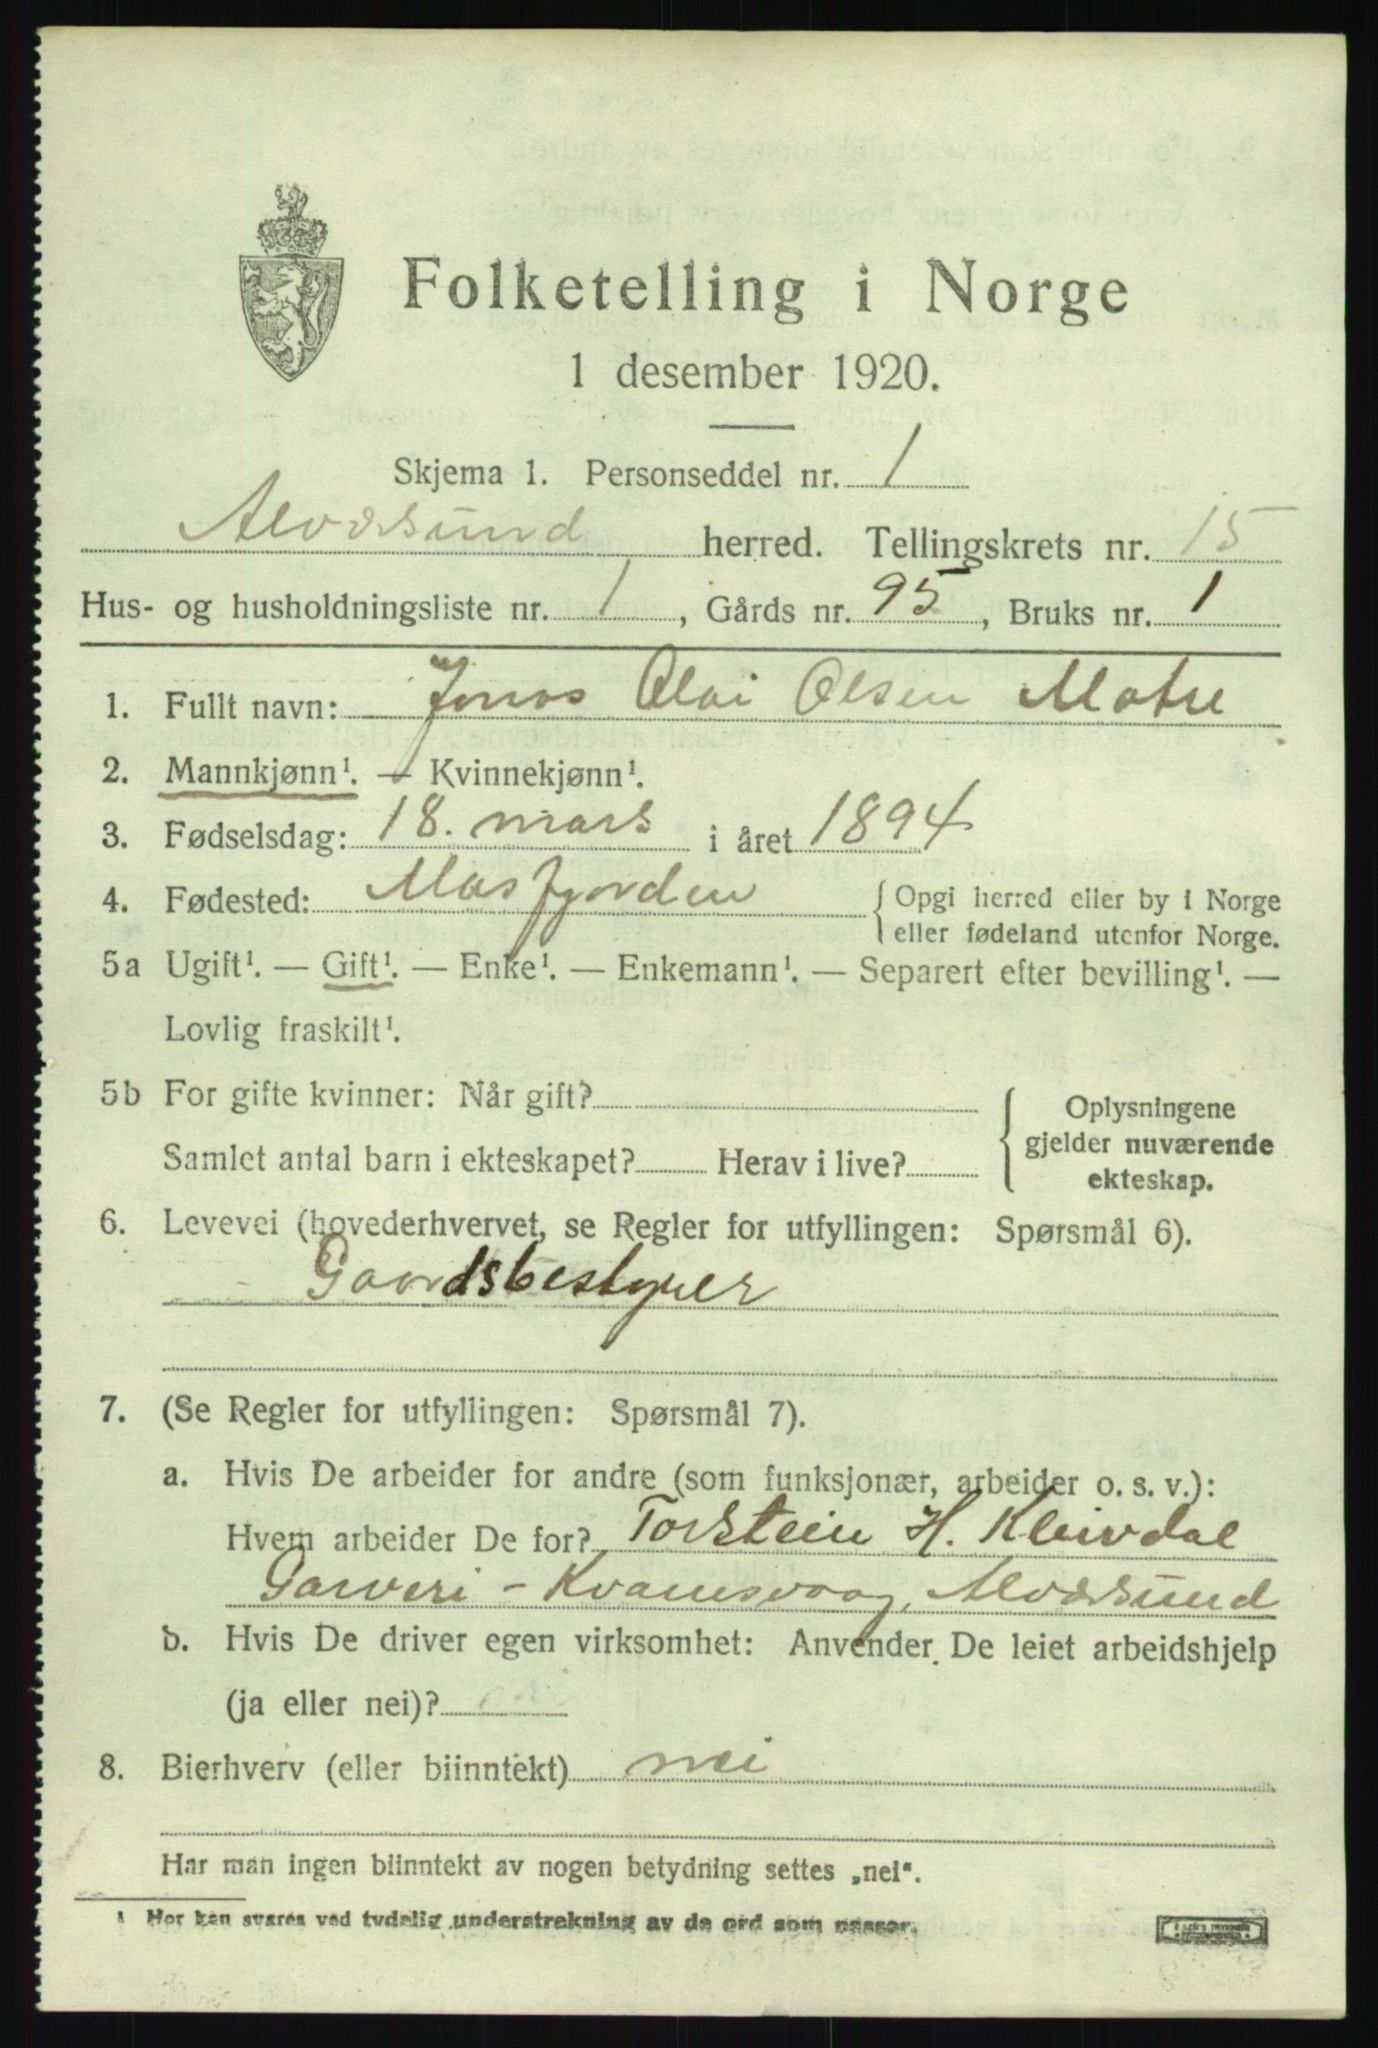 Folketelling i Norge
1 desember 1920.
Skjema 1. Personseddel nr. 1
Alversund herred. Tellingskrets nr. 15
Hus- og husholdningsliste nr. 1, Gårds nr. 95, Bruks nr. 1
1. Fullt navn: Jonas Olai Olsen Matre
2. Mannkjønn¹. — Kvinnekjønn¹.
3. Fødselsdag: 18. mars i året 1894
4. Fødested: Masfjorden { Opgi herred eller by i Norge
eller fødeland utenfor Norge.
5a Ugift¹. — Gift¹. — Enke¹. — Enkemann¹. — Separert efter bevilling¹. —
Lovlig fraskilt¹.
5b For gifte kvinner: Når gift?
Samlet antal barn i ekteskapet? Herav i live?
{ Oplysningene
gjelder nuværende
ekteskap.
6. Levevei (hovederhvervet, se Regler for utfyllingen: Spørsmål 6).
Gaardsbestyrer
7. (Se Regler for utfyllingen: Spørsmål 7).
a. Hvis De arbeider for andre (som funksjonær, arbeider o. s. v.):
Hvem arbeider De for? Torstein H. Kleivdal
Garveri - Kvamsvaag, Alversund
b. Hvis De driver egen virksomhet: Anvender De leiet arbeidshjelp
(ja eller nei)?
8. Bierhverv (eller biinntekt) nei
Har man ingen biinntekt av nogen betydning settes „nei“.
¹ Her kan svares ved tydelig understrekning av de ord som passer.